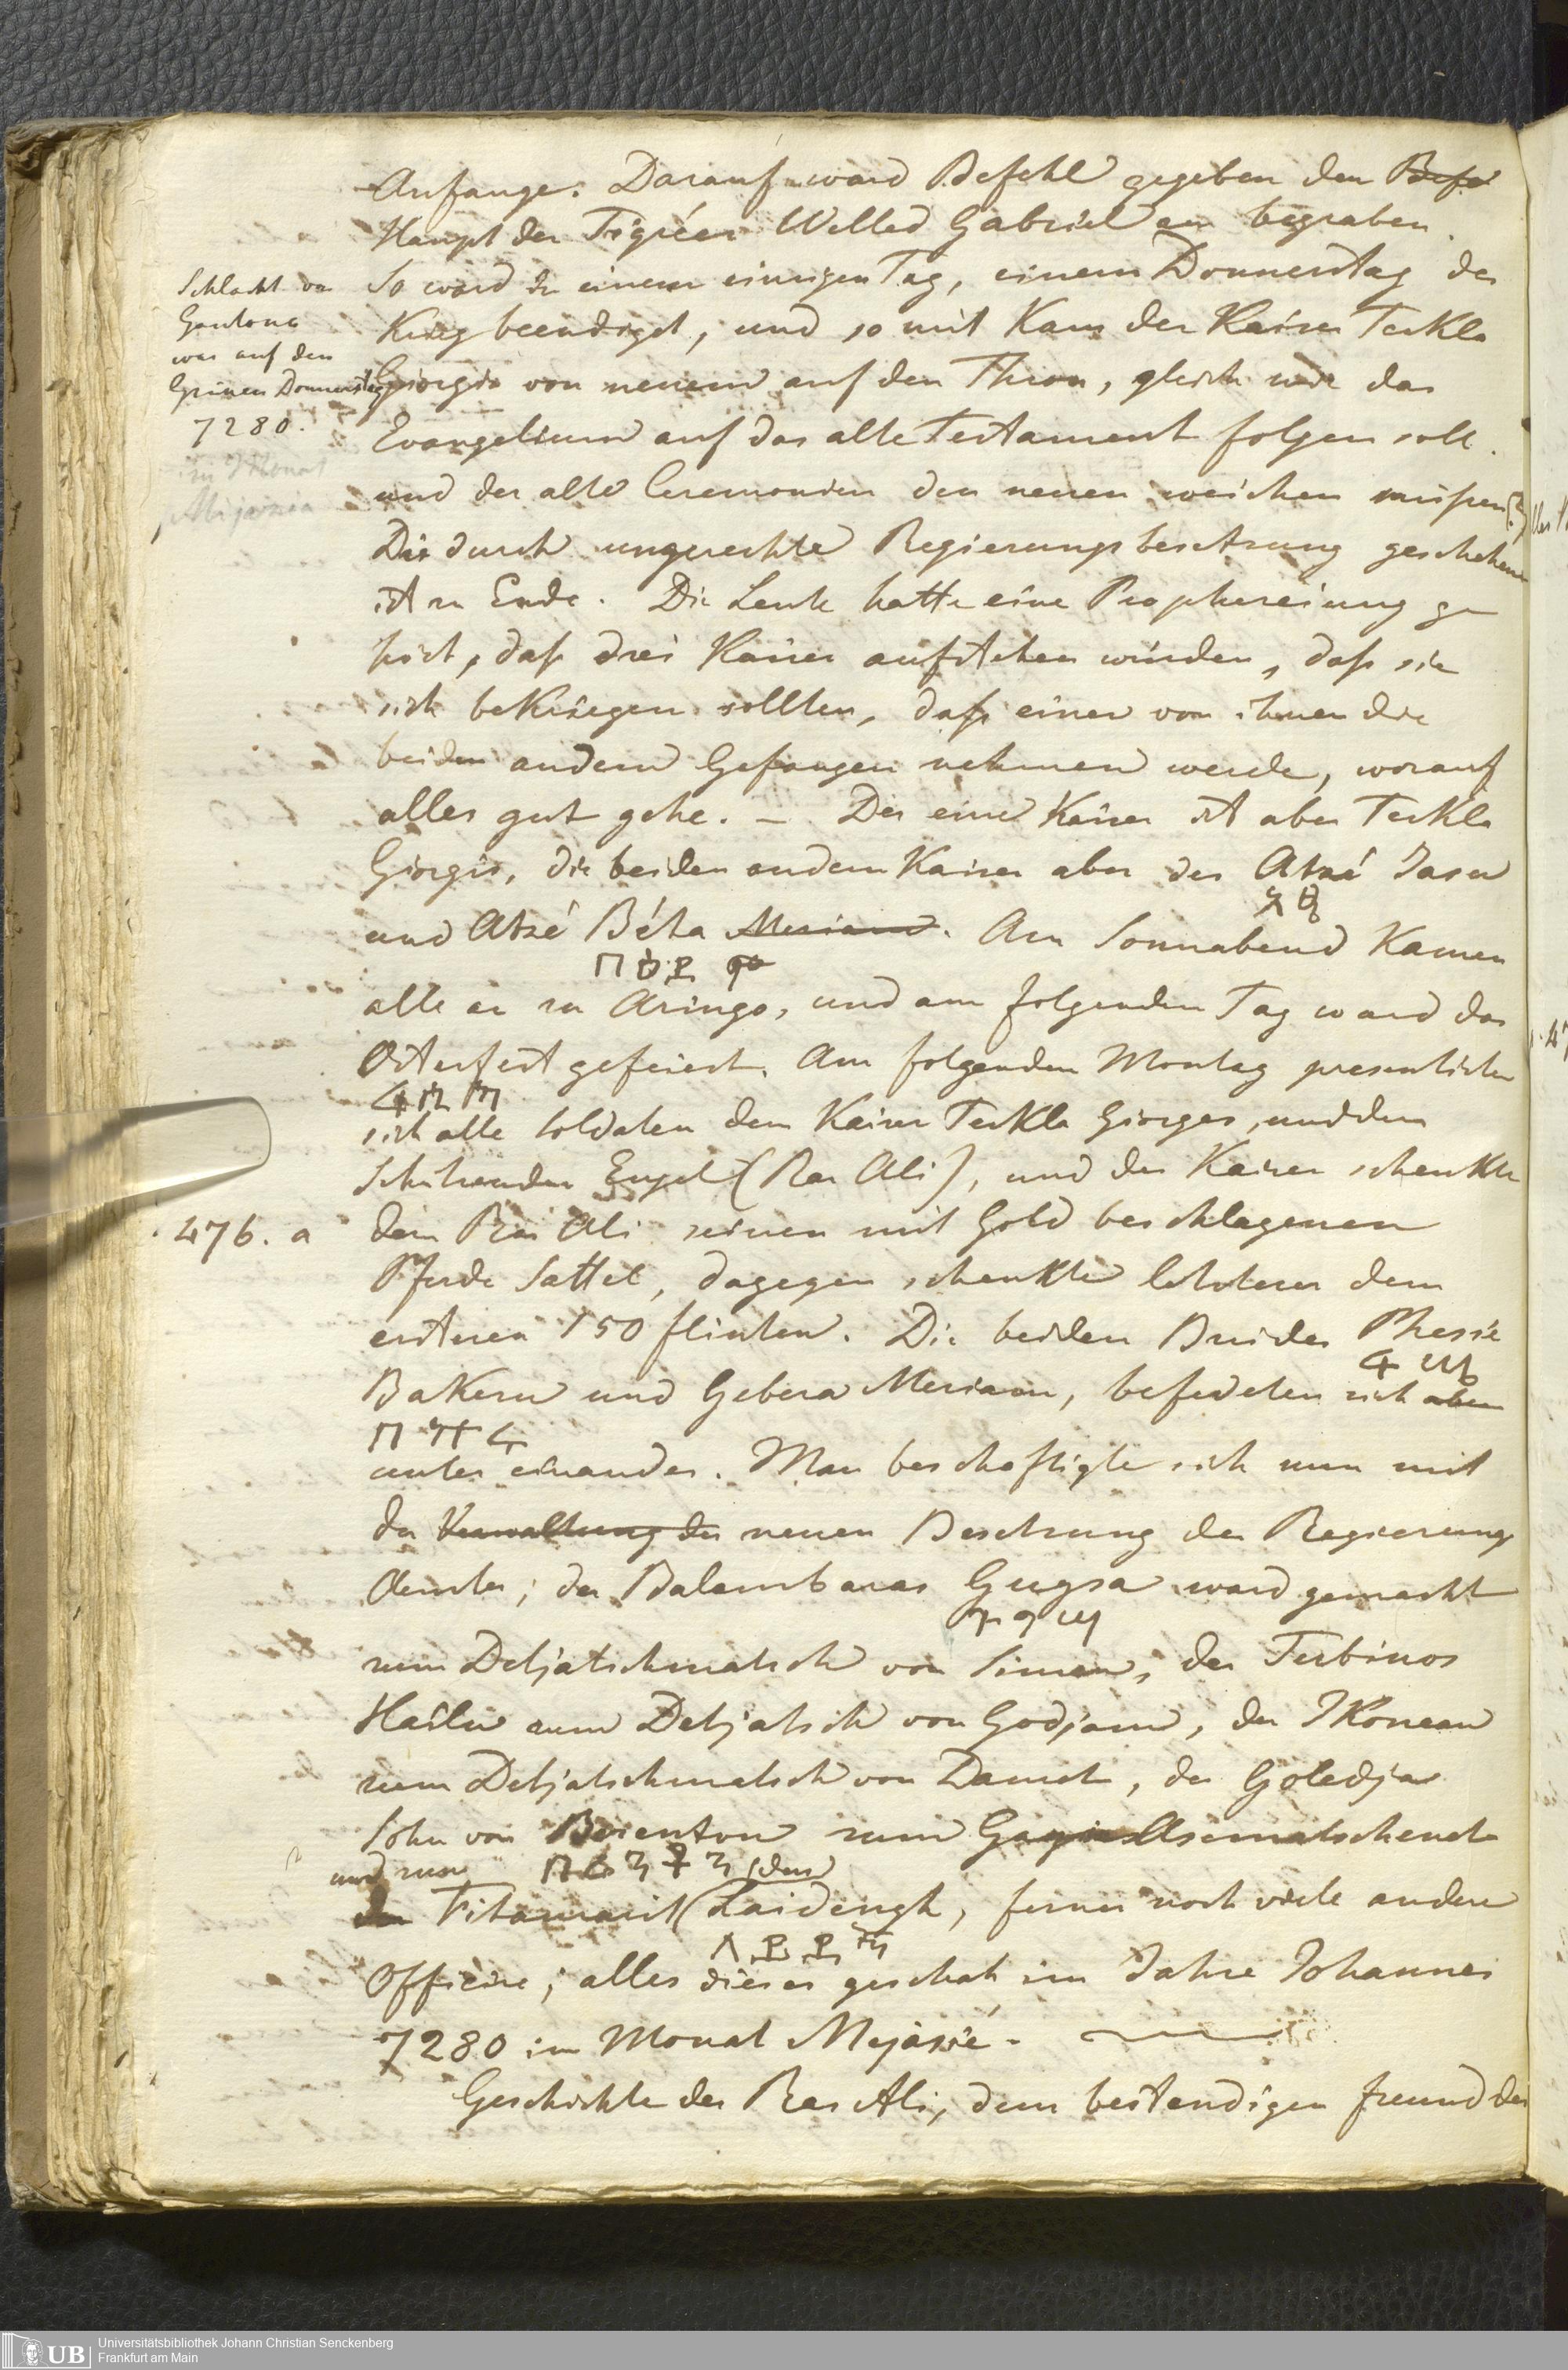 Anfange. Darauf ward Befehl gegeben den Befe
Haupt der Tigréer Welled Gabriel an begraben.
So ward in einem einzigen Tag, einem Donnerstag der
Krieg beendiget, und so mit Kam der Kaiser Teckla
Giorgis von neuem auf den Thron, gleich wie das
Evangelium auf das alte Testament folgen soll.
und der alte Ceremonien den neuen weichen müssen
Die durch ungerechte Regierungsbesetzung geschehen
ist zu Ende. Die Leute hatte eine Prophezeiung ge
hört, daß drei Kaiser aufstehen würden, daß sie
sich beKriegen sollten, daß einer von ihnen die
beiden andern Gefangen nehmen werde, worauf
alles gut gehe. – Der eine Kaiser ist aber Teckla
Giorgis, die beiden andern Kaiser aber der Atzé Jasu
und Atzé Béda Meriam. Am Sonnabend Kamen
alle an zu Aringo, und am folgenden Tag ward das
Osterfest gefeiert. Am folgenden Montag presentirten
sich alle Soldaten dem Kaiser Teckla Giorges, und dem
Schützenden Engel (Ras Ali), und der Kaiser schenkte
dem Ras Ali seinen mit Gold beschlagenen
Pferde Sattel, dagegen schenkte letzterer dem
ersteren 150 flinten. Die beiden Bruder Phesié
BaKeru und Gebera Meriam, befedeten sich aben
unter einander. Man beschaftigte sich nun mit
der Verwaltung der neuen Besetzung der Regierungs
Aemter; der Balambaras Gugsa ward gemacht
ጉግሣ
zum Detjatschmatsch von Simen, der Tubinos
Hailu zum Detjatsch von Godjam, der IKonean
zum Detjatschmatsch von Damot, der Goledja
Sohn von Berenton zum Asematschench
und zum
den Fitaurari (den) Laidengh, ferner noch viele andere
Officire; alles dieses geschah im Jahre Johannes
7280 im Monat Mejasié.
Geschichte des Ras Ali, dem bestendigen freund des
Schlacht von
Gontona
war auf den
Grünen Donnerstag
7280.
im Monat
476. a
Universitätsbibliothek Johann Christian Senckenberg
Frankfurt am Main
UB